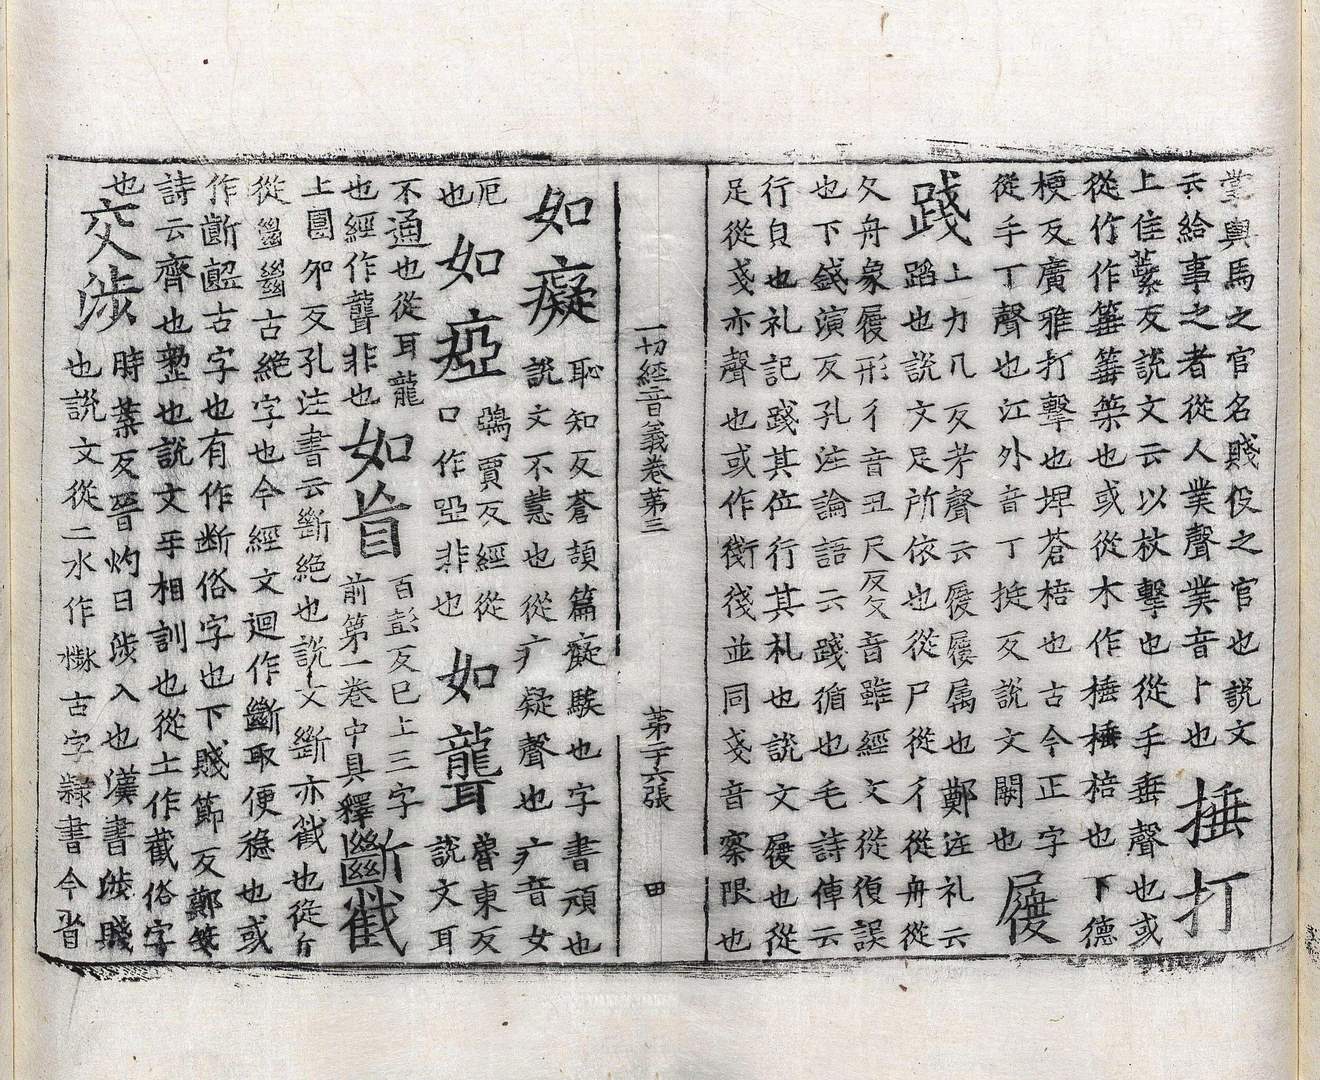 掌輿馬之官名賤役之官也說文
云給事之者從人業聲業音卜也
捶打
上佳蘂反說文云以杖擊也從手垂聲也或
從竹作箠箠䇿也或從木作棰棰棓也下德
梗反廣雅打擊也埤蒼棓也古今正字
從手丁聲也江外音丁挺反說文闕也
履
踐
上力几反考聲云履屨属也鄭注礼云
蹈也說文足所依也從尸從彳從舟從
夊舟象履形彳音丑尺反夊音雖經文從復誤
也下錢演反孔注論語云踐循也毛詩傳云
行皃也礼記踐其位行其礼也說文履也從
足從戔亦聲也或作並同戔音察限也
一切經音義卷第三 第二十六張 田
如癡
恥知反蒼頡篇癡騃也字書頑也
說文不慧也從疒疑聲也疒音女
厄
也
如瘂
鵶賈反經從
口作啞非也
如聾
魯東反
說文耳
不通也從耳龍
也經作聾非也
如盲
百彭反已上三字
前第一卷中具釋
斷截
上團夘反孔注書云斷絕也說文斷亦截也從斤
從㡭㡭古絕字也今經文迴作斷取便穩也或
作古字也有作断俗字也下賤節反鄭箋
詩云齊也也說文手相訓也從土作截俗字
也
交涉
時葉反晉灼曰涉入也漢書涉賤
也說文從二水作古字隷書今省